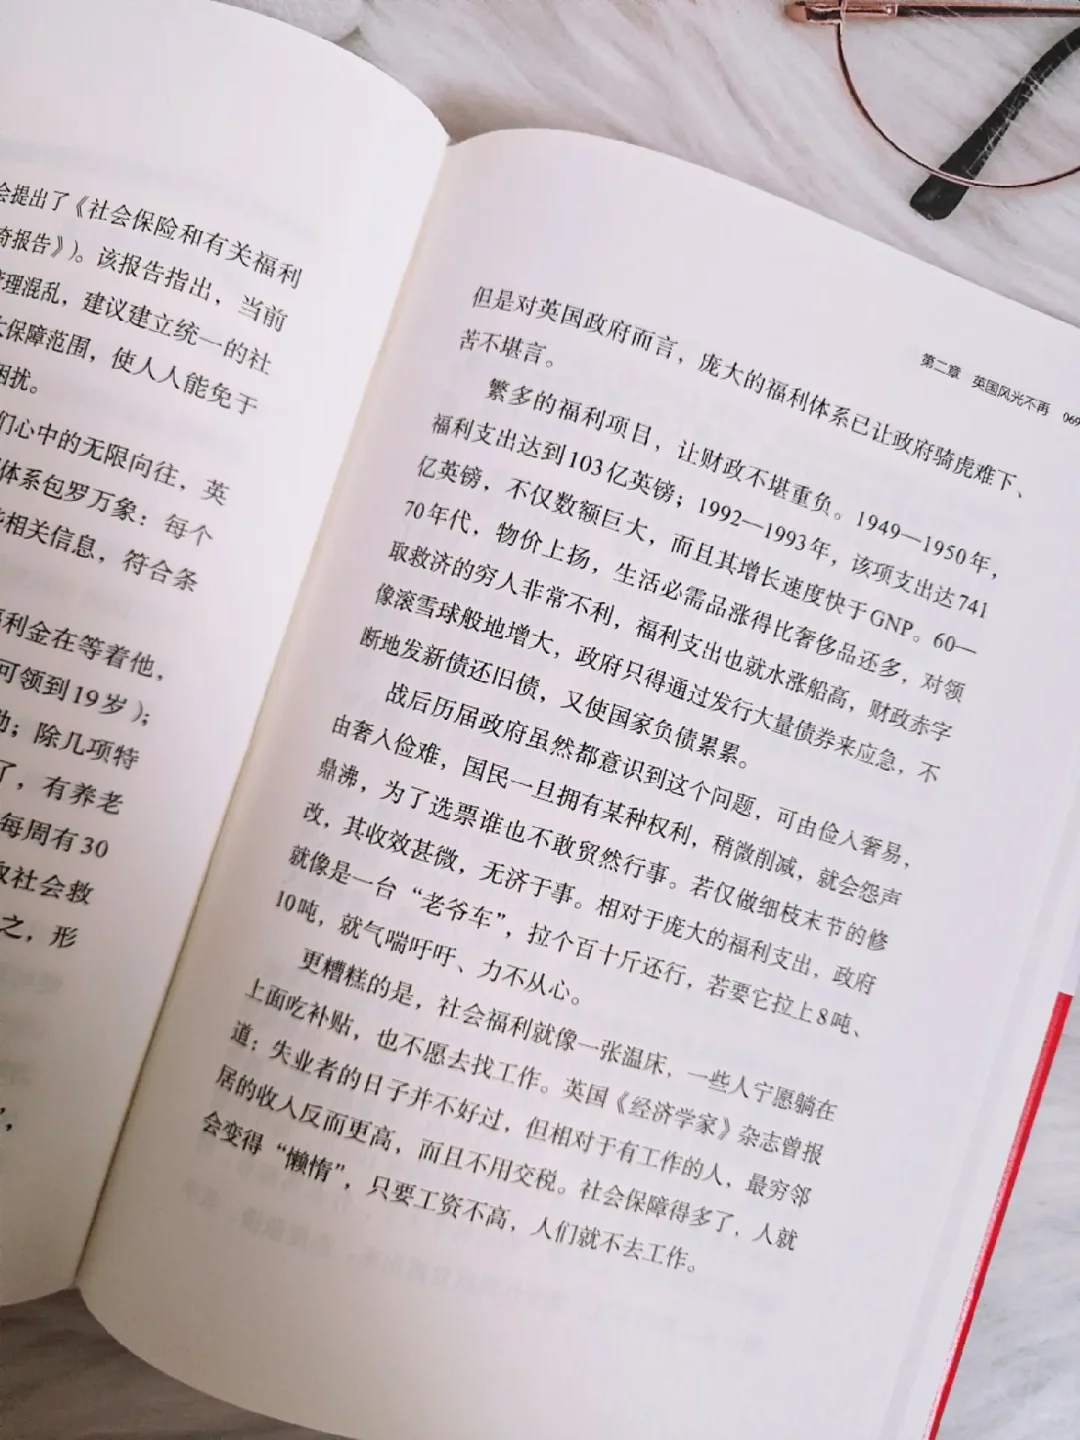 会提出了《社会保险和有关福利
奇报告》)。该报告指出，当前
管理混乱，建议建立统一的社
大保障范围，使人人能免于
困扰。
们心中的无限向往，英
体系包罗万象：每个
些相关信息，符合条
福利金在等着他，
可领到19岁）；
助；除几项特
了，有养老
每周有30
取社会救
之，形
第二章 英国风光不再 069
但是对英国政府而言，庞大的福利体系已让政府骑虎难下、
苦不堪言。
繁多的福利项目，让财政不堪重负。1949—1950年，
福利支出达到103亿英镑；1992—1993年，该项支出达741
亿英镑，不仅数额巨大，而且其增长速度快于GNP。60—
70年代，物价上扬，生活必需品涨得比奢侈品还多，对领
取救济的穷人非常不利，福利支出也就水涨船高，财政赤字
像滚雪球般地增大，政府只得通过发行大量债券来应急，不
断地发新债还旧债，又使国家负债累累。
战后历届政府虽然都意识到这个问题，可由俭入奢易，
由奢入俭难，国民一旦拥有某种权利，稍微削减，就会怨声
鼎沸，为了选票谁也不敢贸然行事。若仅做细枝末节的修
改，其收效甚微，无济于事。相对于庞大的福利支出，政府
就像是一台“老爷车”，拉个百十斤还行，若要它拉上8吨、
10吨，就气喘吁吁、力不从心。
更糟糕的是，社会福利就像一张温床，一些人宁愿躺在
上面吃补贴，也不愿去找工作。英国《经济学家》杂志曾报
道：失业者的日子并不好过，但相对于有工作的人，最穷邻
居的收入反而更高，而且不用交税。社会保障得多了，人就
会变得“懒惰”，只要工资不高，人们就不去工作。